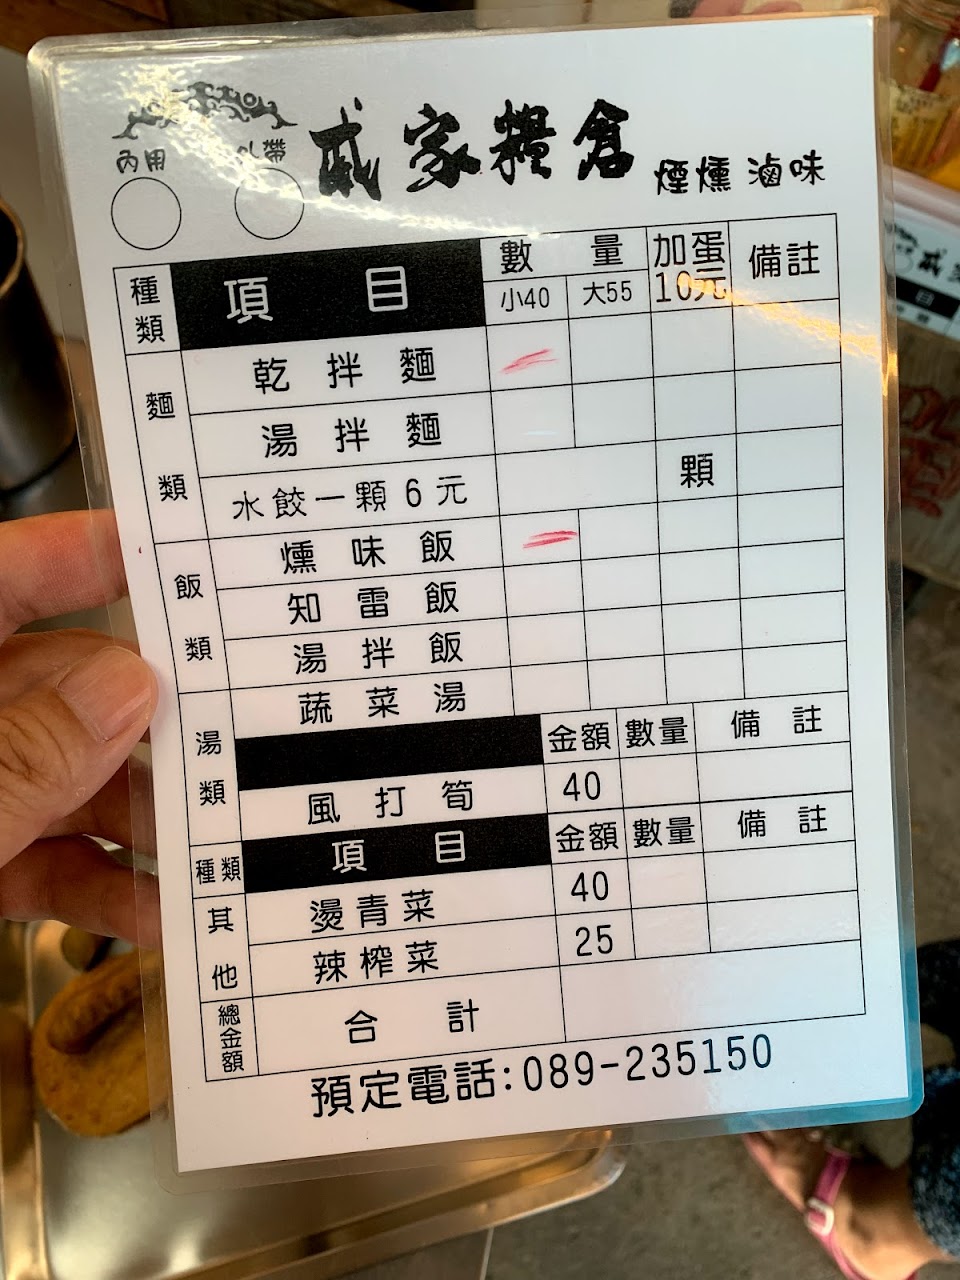 內用 外帶 戚家糧倉 煙燻 滷味
種類 項目 數量 加蛋10元 備註
小40 大55
麵類 乾拌麵
湯拌麵
水餃一顆6元 顆
飯類 燻味飯
知雷飯
湯拌飯
湯類 蔬菜湯
金額 數量 備註
風打筍 40
種類 項目 金額 數量 備註
其他 燙青菜 40
辣榨菜 25
總金額 合計
預定電話:089-235150